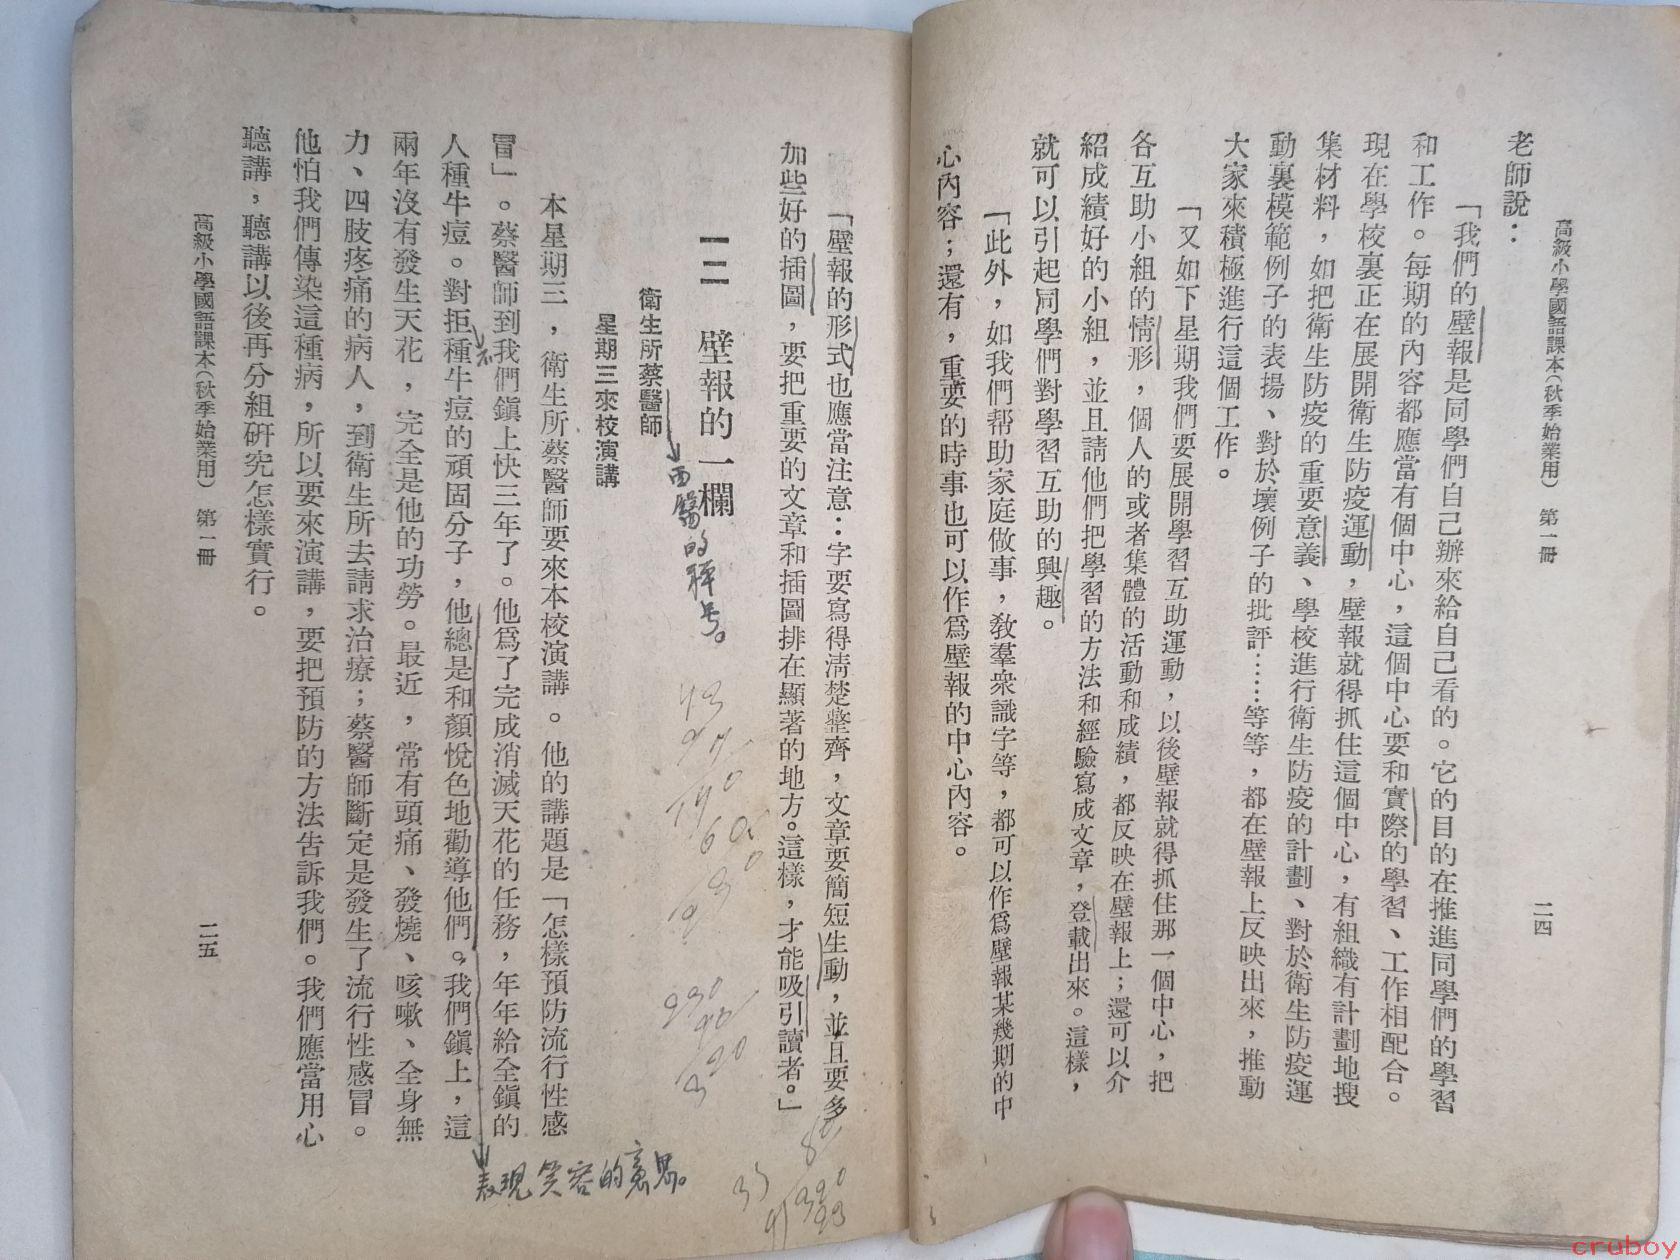 高級小學國語課本（秋季始業用）　第一冊
二四
老師說：
「我們的壁報是同學們自己辦來給自己看的。它的目的在推進同學們的學習
和工作。每期的內容都應當有個中心，這個中心要和實際的學習、工作相配合。
現在學校裏正在展開衛生防疫運動，壁報就得抓住這個中心，有組織有計劃地搜
集材料，如把衛生防疫的重要意義、學校進行衛生防疫的計劃、對於衛生防疫運
動裏模範例子的表揚、對於壞例子的批評……等等，都在壁報上反映出來，推動
大家來積極進行這個工作。
「又如下星期我們要展開學習互助運動，以後壁報就得抓住那一個中心，把
各互助小組的情形，個人的或者集體的活動和成績，都反映在壁報上；還可以介
紹成績好的小組，並且請他們把學習的方法和經驗寫成文章，登載出來。這樣，
就可以引起同學們對學習互助的興趣。
「此外，如我們幫助家庭做事，教羣衆識字等，都可以作爲壁報某幾期的中
心內容；還有，重要的時事也可以作爲壁報的中心內容。
「壁報的形式也應當注意：字要寫得清楚整齊，文章要簡短生動，並且要多
加些好的插圖，要把重要的文章和插圖排在顯著的地方。這樣，才能吸引讀者。」
一三　壁報的一欄
西醫的稱号。
衛生所蔡醫師
星期三來校演講
本星期三，衛生所蔡醫師要來本校演講。他的講題是「怎樣預防流行性感
冒」。蔡醫師到我們鎮上快三年了。他爲了完成消滅天花的任務，年年給全鎮的
不
人種牛痘。對拒種牛痘的頑固分子，他總是和顏悅色地勸導他們。我們鎮上，這
表現笑容的意思。
兩年沒有發生天花，完全是他的功勞。最近，常有頭痛、發燒、咳嗽、全身無
力、四肢疼痛的病人，到衛生所去請求治療；蔡醫師斷定是發生了流行性感冒。
他怕我們傳染這種病，所以要來演講，要把預防的方法告訴我們。我們應當用心
聽講，聽講以後再分組研究怎樣實行。
高級小學國語課本（秋季始業用）　第一冊
二五
cruboy